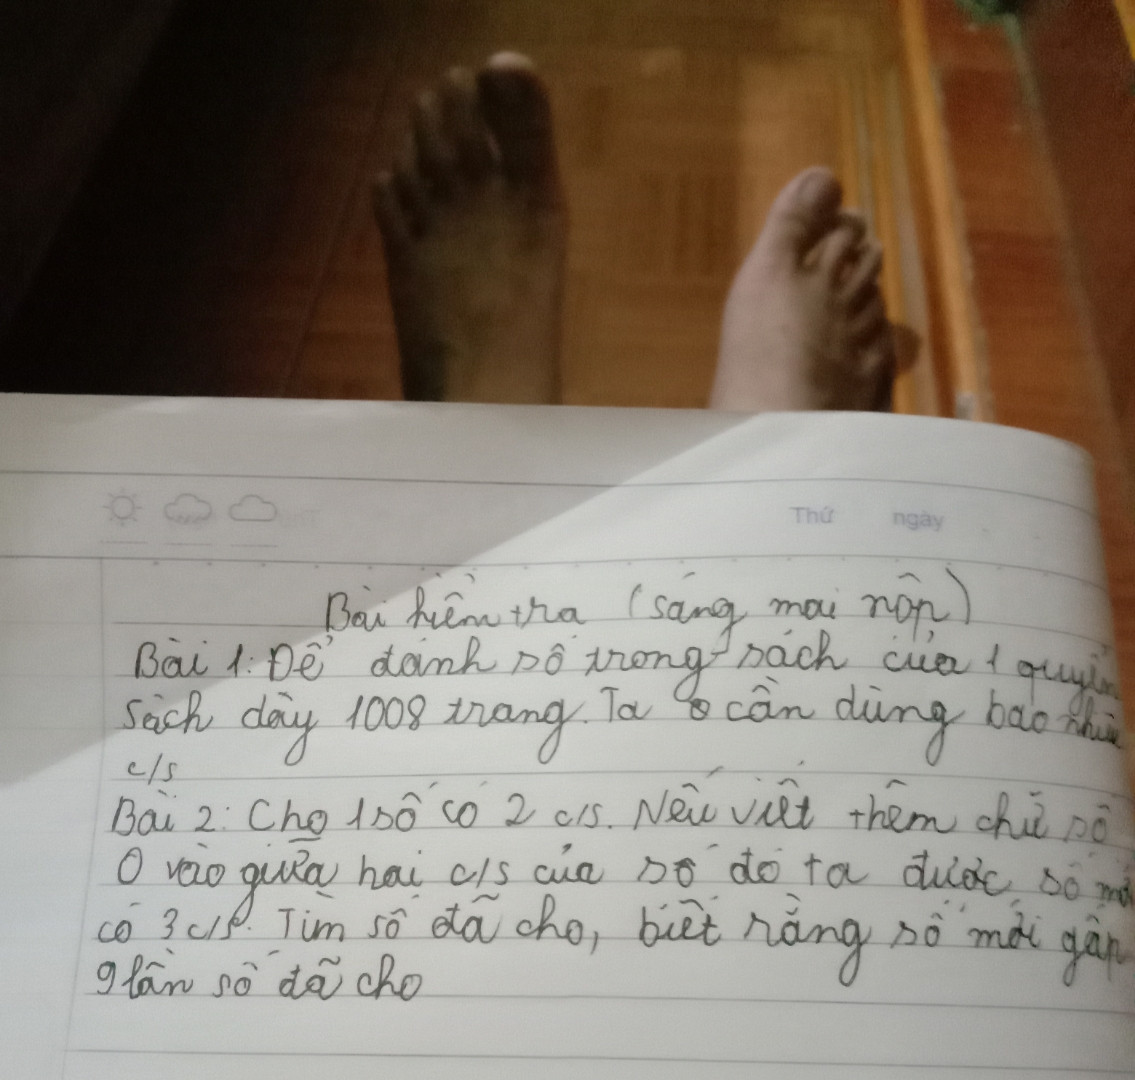 Thứ ngày
Bài kiểm tra (sáng mai nộp)
Bài 1: Để đánh số trong sách của 1 quyển
sách dày 1008 trang. Ta cần dùng bao nhiêu
c/s
Bài 2: Cho 1 số có 2 c/s. Nếu viết thêm chữ số
0 vào giữa hai c/s của số đó ta được số mới
có 3 c/s. Tìm số đã cho, biết rằng số mới gấp
9 lần số đã cho